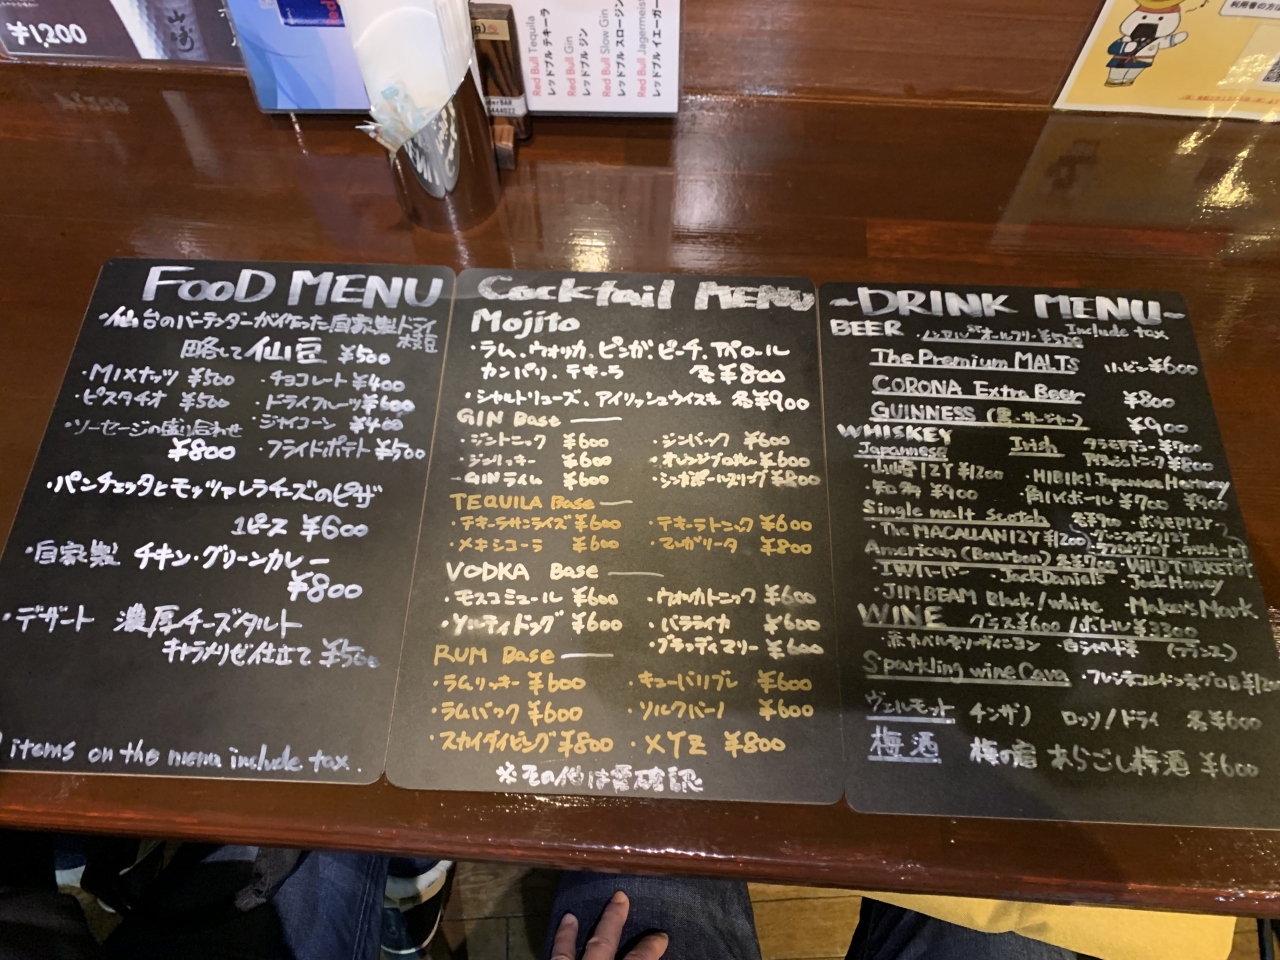 ¥1,200
Red Bull Tequila
レッドブル テキーラ
Red Bull Gin
レッドブル ジン
Red Bull Slow Gin
レッドブル スロージン
Red Bull Jagermeister
レッドブル イエーガー
FOOD MENU
・仙台のバーテンダーが作った自家製ドライ枝豆
略して仙豆 ¥500
・MIXナッツ ¥500 ・チョコレート ¥400
・ピスタチオ ¥500 ・ドライフルーツ ¥600
・ソーセージの盛り合わせ ・ジャイコーン ¥400
¥800 ・フライドポテト ¥500
・パンチェッタとモッツァレラチーズのピザ
1ピース ¥600
・自家製 チキン・グリーンカレー
¥800
・デザート 濃厚チーズタルト
キャラメリゼ仕立て ¥500
items on the menu include tax.
Cocktail MENU
Mojito
・ラム、ウォッカ、ピンガ、ピーチ、アペロール
カンパリ、テキーラ 各¥800
・シャルトリューズ、アイリッシュウイスキ 各¥900
GIN Base
・ジントニック ¥600 ・ジンバック ¥600
・ジンリッキー ¥600 ・オレンジブロッサム ¥600
・GINライム ¥600 ・シンガポールスリング ¥800
TEQUILA Base
・テキーラサンライズ ¥600 ・テキーラトニック ¥600
・メキシコーラ ¥600 ・マルガリータ ¥800
VODKA Base
・モスコミュール ¥600 ・ウォッカトニック ¥600
・ソルティドッグ ¥600 ・バラライカ ¥600
・ブラッディマリー ¥600
RUM Base
・ラムリッキー ¥600 ・キューバリブレ ¥600
・ラムバック ¥600 ・ソルクバーノ ¥600
・スカイダイビング ¥800 ・XYZ ¥800
※その他は要確認
~DRINK MENU~
BEER オールフリー ¥500 Include tax
The Premium MALTs 小ビン ¥600
CORONA Extra Beer ¥800
GUINNESS (黒・サージャー) ¥900
WHISKEY
Japanese Irish タラモアデュー ¥700
¥800
・山崎12Y ¥1200 ・HIBIKI Japanese Harmony
・知多 ¥900 ・角ハイボール ¥700 ¥900
Single malt scotch 各¥900 ・ボウモア12Y
・The MACALLAN12Y ¥1200
American (Bourbon) 各¥700 ・WILD TURKEY
・I.W.ハーパー ・Jack Daniels ・Jack Honey
・JIM BEAM Black/white ・Maker's Mark
WINE グラス¥600/ボトル¥3300
・赤 カベルネソーヴィニヨン ・白 シャルドネ (フランス)
Sparkling wine Cava
ヴェルモット チンザノ ロッソ/ドライ 各¥600
梅酒 梅の宿 あらごし梅酒 ¥600